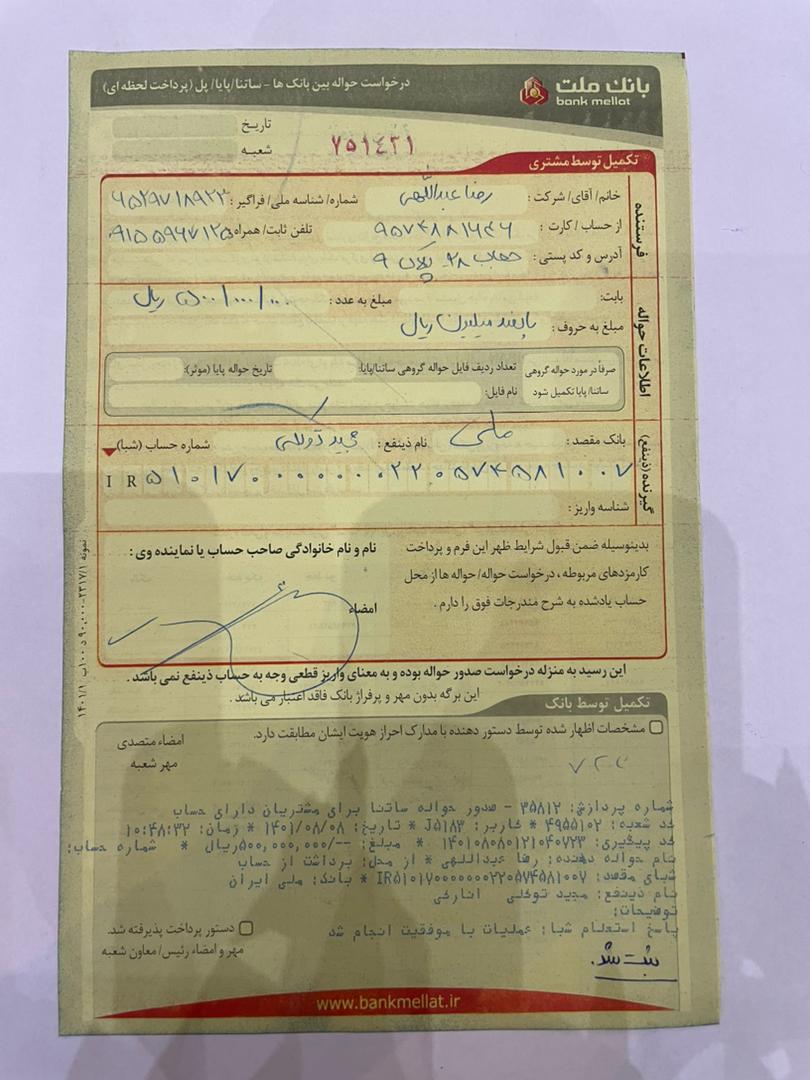 بانک ملت
bank mellat
درخواست حواله بین بانک ها - ساتنا/پایا/ پل (پرداخت لحظه ای)
تاریخ
شعبه
۷۵۱۴۳۱
تکمیل توسط مشتری
فرستنده
خانم/ آقای/ شرکت : رضا عبداللهی شماره/ شناسه ملی/ فراگیر :
از حساب / کارت : تلفن ثابت/ همراه
آدرس و کد پستی : ۲۸ پلاک ۹
اطلاعات حواله
بابت: مبلغ به عدد : ۵۰۰/۰۰۰/۰۰۰ ریال
مبلغ به حروف : پانصد میلیون ریال
صرفاً در مورد حواله گروهی ساتنا/ پایا تکمیل شود
تعداد ردیف فایل حواله گروهی ساتنا/پایا: تاریخ حواله پایا (موثر):
نام فایل:
گیرنده (ذینفع)
بانک مقصد : ملی نام ذینفع : مجید توکلی شماره حساب (شبا)
IR ۵۱۰۱۷۰۰۰۰۰۰۰۲۲۰۵۷۴۵۸۱۰۰۷
شناسه واریز :
بدینوسیله ضمن قبول شرایط ظهر این فرم و پرداخت
کارمزدهای مربوطه ، درخواست حواله/ حواله ها از محل
حساب یادشده به شرح مندرجات فوق را دارم .
نام و نام خانوادگی صاحب حساب یا نماینده وی :
امضاء
این رسید به منزله درخواست صدور حواله بوده و به معنای واریز قطعی وجه به حساب ذینفع نمی باشد .
این برگه بدون مهر و پرفراژ بانک فاقد اعتبار می باشد .
تکمیل توسط بانک
مشخصات اظهار شده توسط دستور دهنده با مدارک احراز هویت ایشان مطابقت دارد.
امضاء متصدی
مهر شعبه
شماره پردازش: ۳۵۸۱۲ - صدور حواله ساتنا برای مشتریان دارای حساب
کد شعبه: ۴۹۵۵۱۰۲ * کاربر: J۵۱۸۳ * تاریخ: ۱۴۰۱/۰۸/۰۸ * زمان: ۱۰:۴۸:۳۲
کد پیگیری: ۱۴۰۱۰۸۰۸۰۱۲۱۰۴۰۷۲۳ * مبلغ: --/۵۰۰,۰۰۰,۰۰۰ریال * شماره حساب:
نام حواله دهنده: رضا عبداللهی * از محل: برداشت از حساب
شبای مقصد: IR۵۱۰۱۷۰۰۰۰۰۰۰۲۲۰۵۷۴۵۸۱۰۰۷ * بانک: ملی ایران
نام ذینفع: مجید توکلی انارکی
توضیحات:
پاسخ استعلام شبا: عملیات با موفقیت انجام شد
ثبت شد.
دستور پرداخت پذیرفته شد.
مهر و امضاء رئیس/ معاون شعبه
www.bankmellat.ir